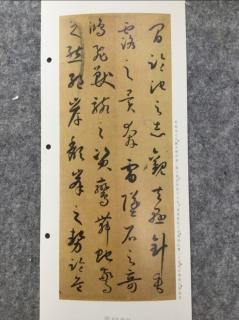 間臨池之志觀夫懸針垂
露之異奔雷墜石之奇
鴻飛獸駭之資鸞舞蛇驚
之態絕岸頹峯之勢臨危